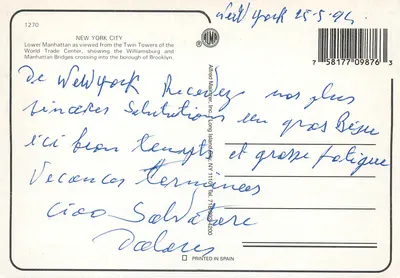 1270
NEW YORK CITY
Lower Manhattan as viewed from the Twin Towers of the
World Trade Center, showing the Williamsburg and
Manhattan Bridges crossing into the borough of Brooklyn.
New york 25-5-94
7 58177 09876 3
De New york Recevez nos plus
sinceres Salutations en gros
ici beau temps et grosse fatigue
Vacances terminées
ciao Salvatore
Dolores
PRINTED IN SPAIN